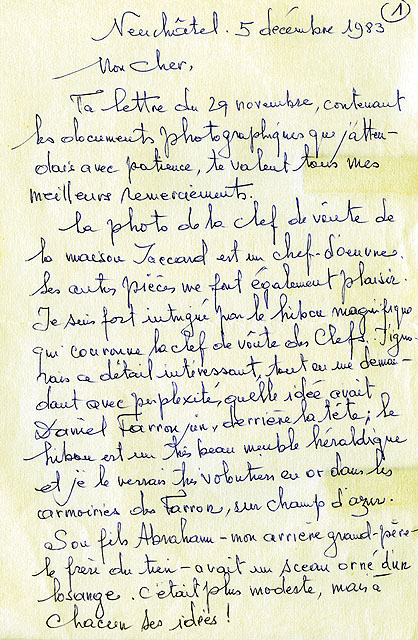 1
Neuchâtel. 5 décembre 1983
Mon cher,
Ta lettre du 29 novembre, contenant
les documents photographiques que j'atten-
dais avec patience, te valent tous mes
meilleurs remerciements.
La photo de la clef de voûte de
la maison Jaccard est un chef-d'oeuvre.
Les autres pièces me font également plaisir.
Je suis fort intrigué par le hibou magnifique
qui couronne la clef de voûte des Clefs. J'igno-
rais ce détail intéressant, tout en me deman-
dant avec perplexité, quelle idée avait
Daniel Farron jun, derrière la tête; le
hibou est un très beau meuble héraldique
et je le verrais très volontiers en or dans les
armoiries des Farron, sur champ d'azur.
Son fils Abraham - mon arrière grand-père -
le frère du tien - avait un sceau orné d'un
losange. C'était plus modeste, mais à
chacun ses idées !